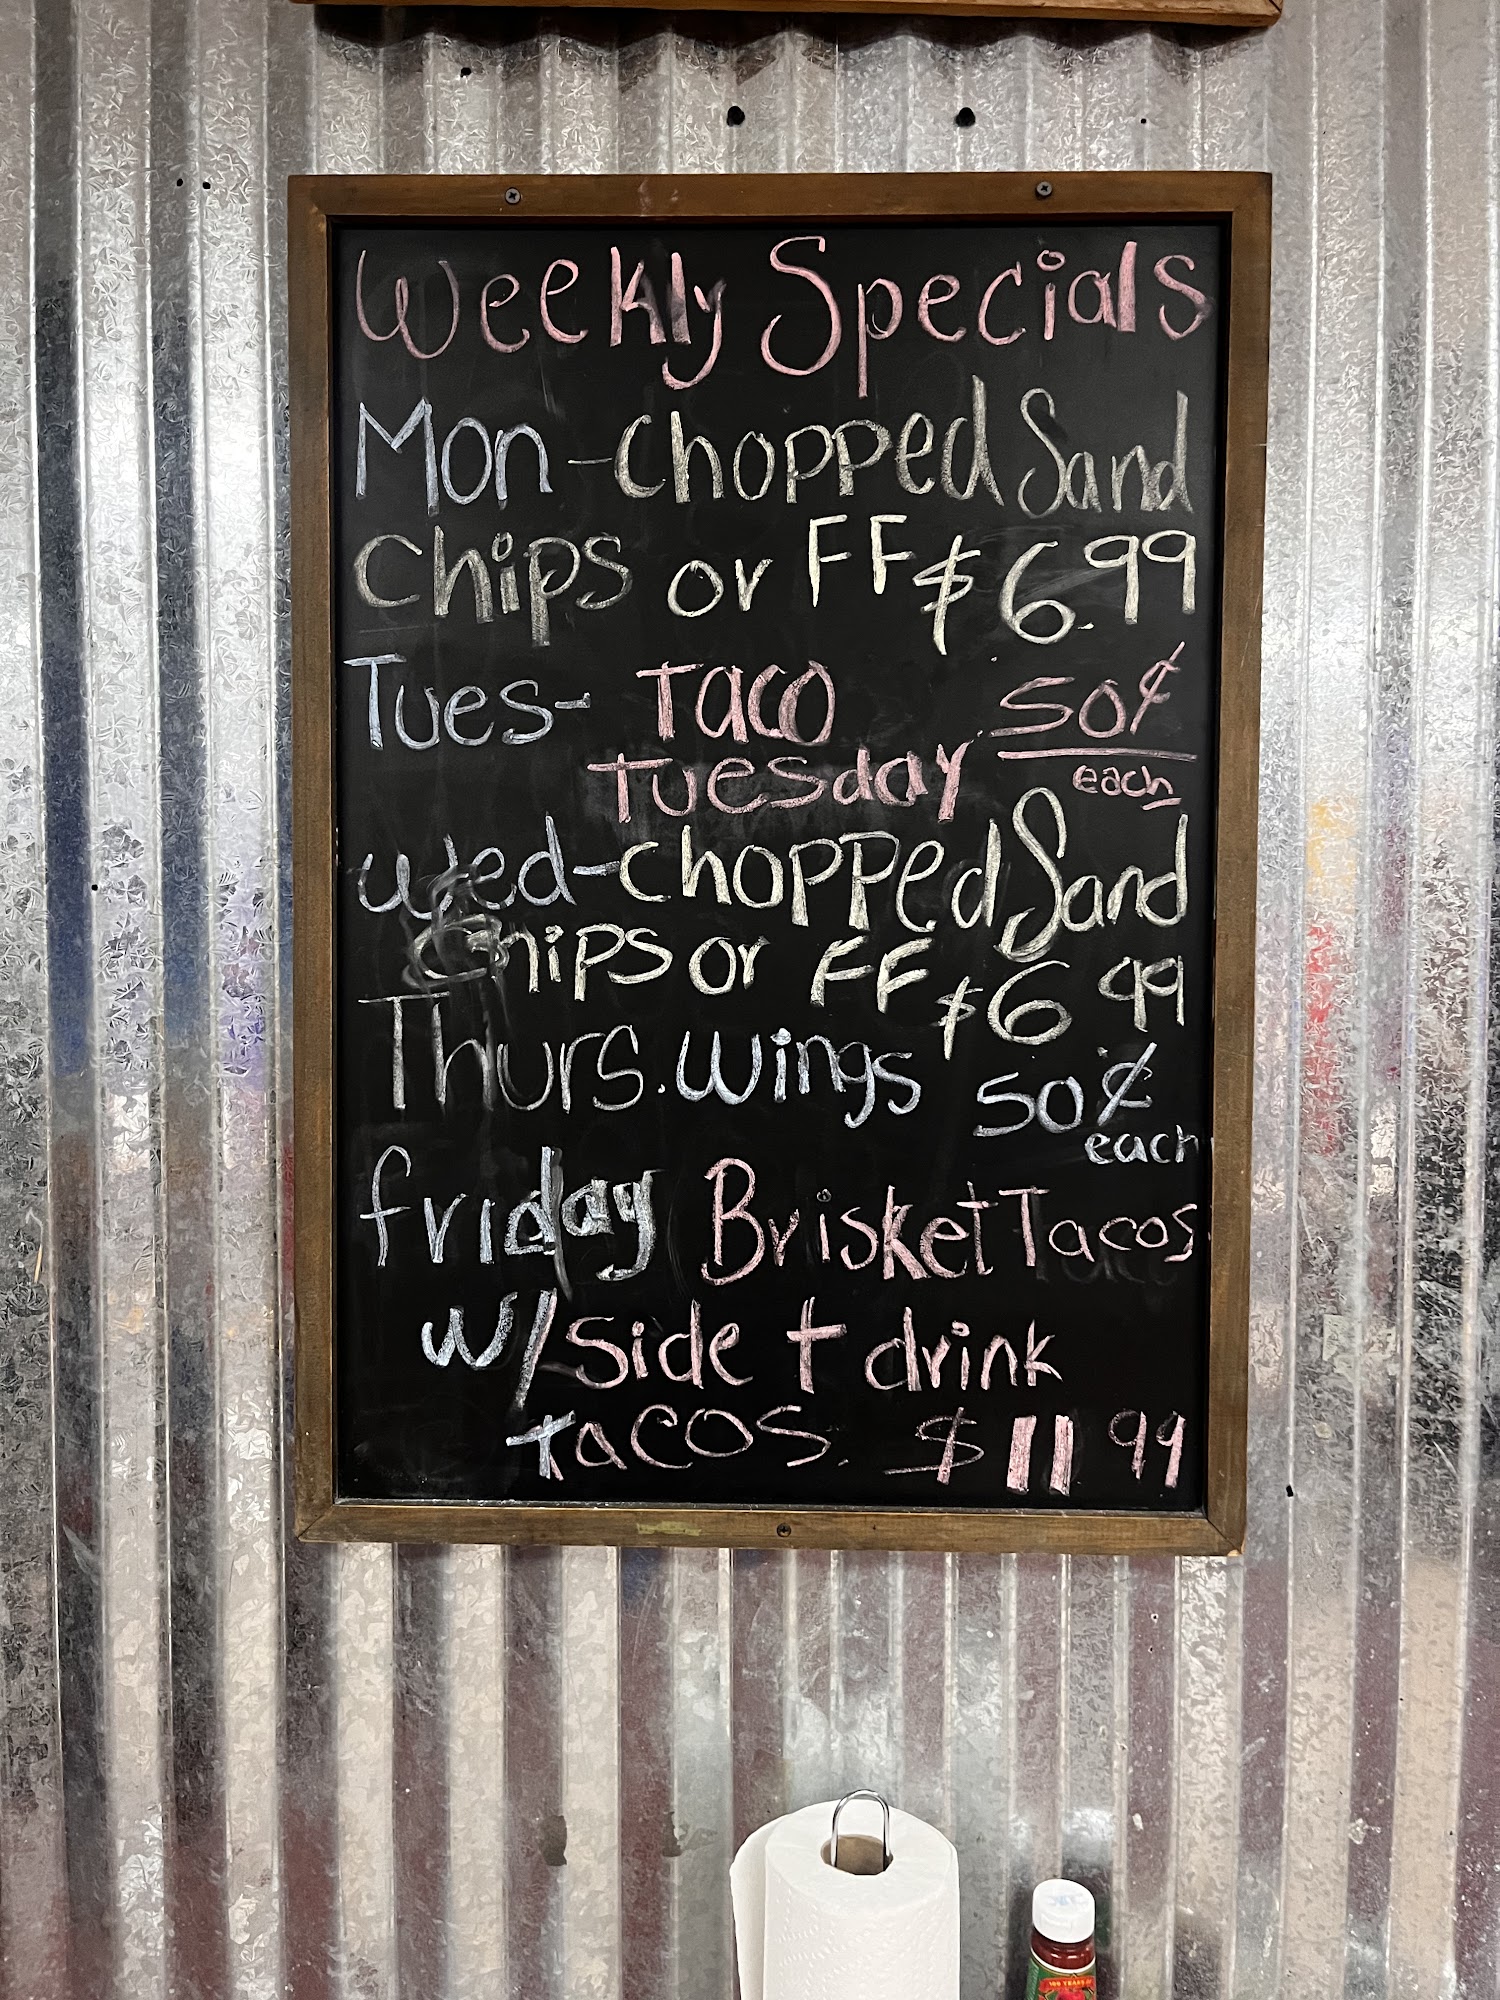 Weekly Specials
Mon-Chopped Sand
Chips or FF $6.99
Tues- Taco 50¢
Tuesday each
Wed-Chopped Sand
Chips or FF $6 99
Thurs. Wings 50¢
each
friday Brisket Tacos
w/side + drink
tacos. $11 99